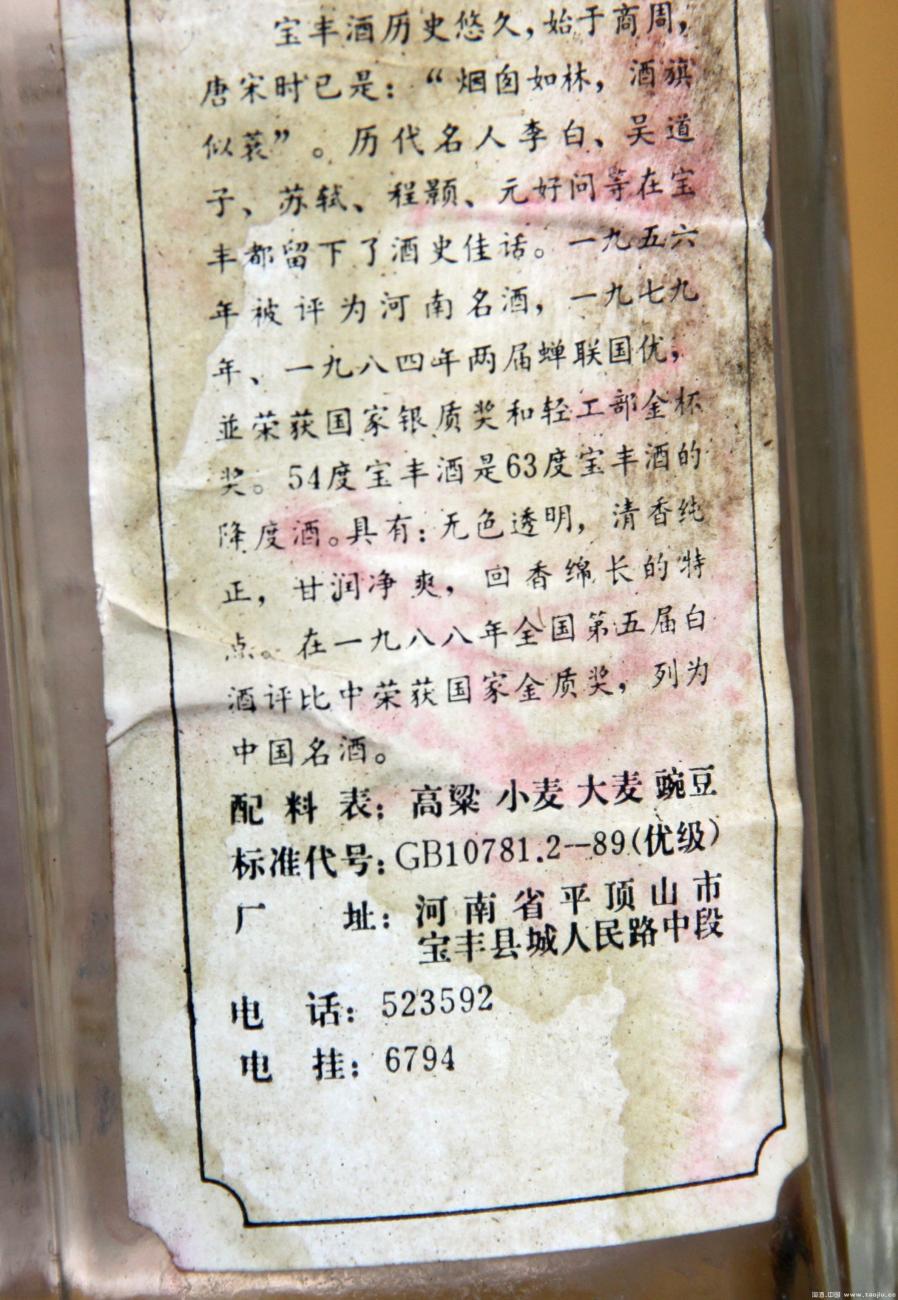 宝丰酒历史悠久，始于商周，
唐宋时已是：“烟囱如林，酒旗
似蓑”。历代名人李白、吴道
子、苏轼、程颢、元好问等在宝
丰都留下了酒史佳话。一九五六
年被评为河南名酒，一九七九
年、一九八四年两届蝉联国优，
並荣获国家银质奖和轻工部金杯
奖。54度宝丰酒是63度宝丰酒的
降度酒。具有：无色透明，清香纯
正，甘润净爽，回香绵长的特
点。在一九八八年全国第五届白
酒评比中荣获国家金质奖，列为
中国名酒。
配料表：高粱 小麦 大麦 豌豆
标准代号：GB10781.2--89(优级)
厂 址：河南省平顶山市
宝丰县城人民路中段
电 话：523592
电 挂：6794
淘酒.中国 www.taojiu.cc